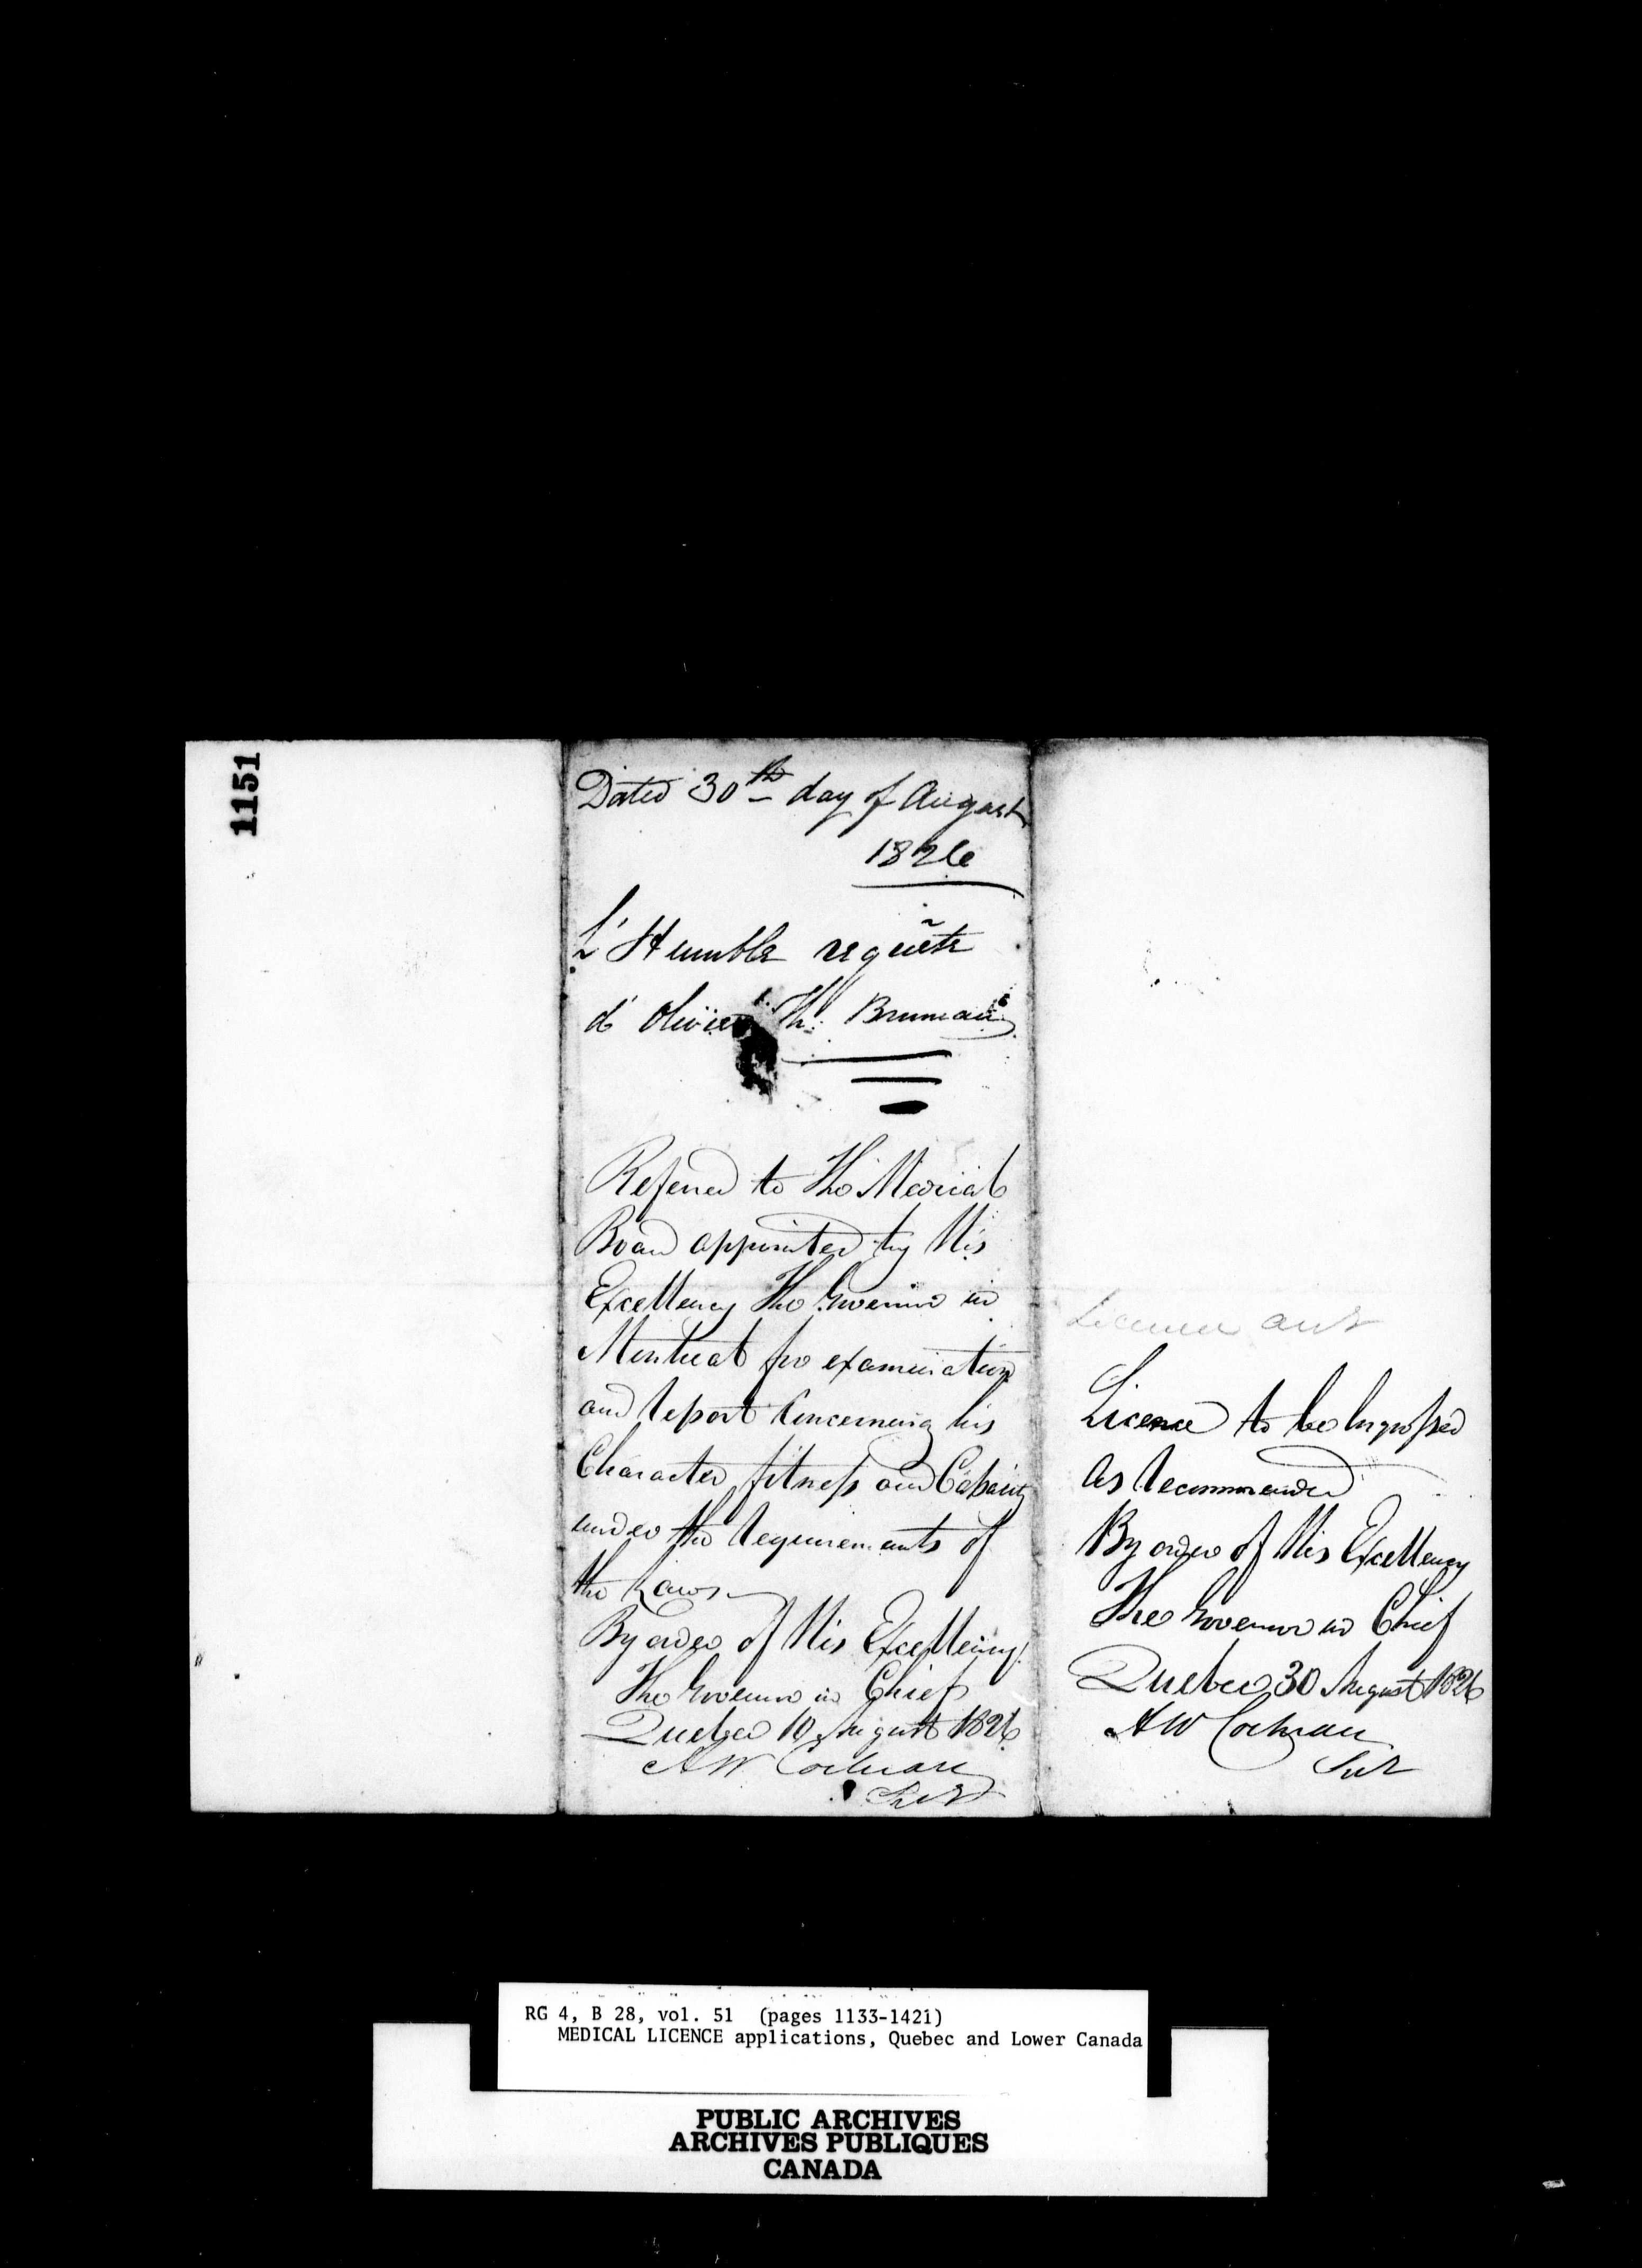 1151
Dated 30th day of August
1826
L'Humble requête
d'Olivier Th: Bruneau
Referred to The Medical
Board appointed by His
Excellency The Governor in
Montreal for examination
and Report Concerning his
Character, fitness and Capacity
under the Requirements of
the Laws
By order of His Excellency
The Governor in Chief
Quebec 10 August 1826
A W Cochran
Secy
Licence
Licence to be Ingrossed
as Recommended
By order of His Excellency
The Governor in Chief
Quebec 30 August 1826
A W Cochran
Secy
RG 4, B 28, vol. 51 (pages 1133-1421)
MEDICAL LICENCE applications, Quebec and Lower Canada
PUBLIC ARCHIVES
ARCHIVES PUBLIQUES
CANADA